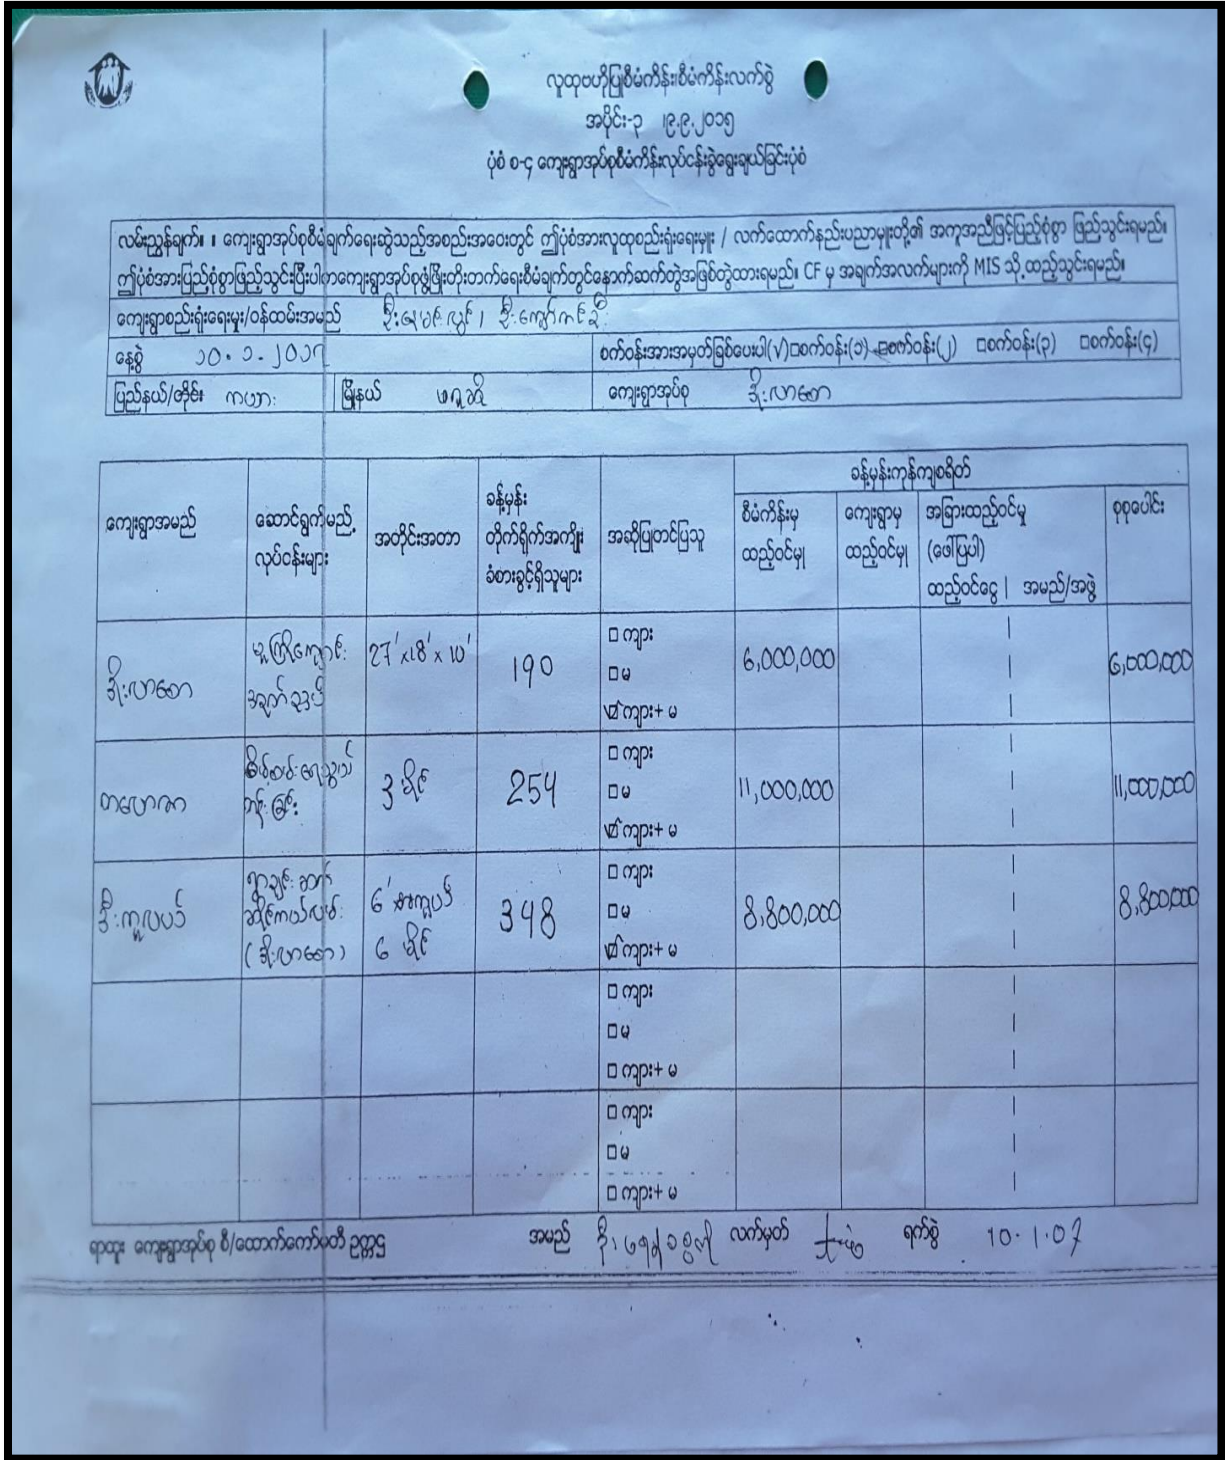 လူထုဗဟိုပြုစီမံကိန်းစီမံကိန်းလက်စွဲ
အပိုင်း-၃ ၊၉.၉.၂၀၁၅
ပုံစံ စ-၄ ကျေးရွာအုပ်စုစီမံကိန်းလုပ်ငန်းခွဲရွေးချယ်ခြင်းပုံစံ
လမ်းညွှန်ချက်။ ။ ကျေးရွာအုပ်စုစီမံချက်ရေးဆွဲသည့်အစည်းအဝေးတွင် ဤပုံစံအားလူထုစည်းရုံးရေးမှူး / လက်ထောက်နည်းပညာမှူးတို့၏ အကူအညီဖြင့်ပြည့်စုံစွာ ဖြည့်သွင်းရမည်။
ဤပုံစံအားပြည့်စုံစွာဖြည့်သွင်းပြီးပါကကျေးရွာအုပ်စုဖွံ့ဖြိုးတိုးတက်ရေးစီမံချက်တွင်နောက်ဆက်တွဲအဖြစ်တွဲထားရမည်။ CF မှ အချက်အလက်များကို MIS သို့ ထည့်သွင်းရမည်။
ကျေးရွာစည်းရုံးရေးမှူး/ဝန်ထမ်းအမည်
နေ့စွဲ ၁၀.၁.၂၀၁၇ စက်ဝန်းအားအမှတ်ခြစ်ပေးပါ(√)□စက်ဝန်း(၁) □စက်ဝန်း(၂) □စက်ဝန်း(၃) □စက်ဝန်း(၄)
ပြည်နယ်/တိုင်း ကယား မြို့နယ် ဖရူဆို ကျေးရွာအုပ်စု ဒိုးလာစော
ကျေးရွာအမည် ဆောင်ရွက်မည့် လုပ်ငန်းများ အတိုင်းအတာ ခန့်မှန်း တိုက်ရိုက်အကျိုး ခံစားခွင့်ရှိသူများ အဆိုပြုတင်ပြသူ ခန့်မှန်းကုန်ကျစရိတ်
စီမံကိန်းမှ ထည့်ဝင်မှု ကျေးရွာမှ ထည့်ဝင်မှု အခြားထည့်ဝင်မှု (ဖေါ်ပြပါ) ထည့်ဝင်ငွေ | အမည်/အဖွဲ့ စုစုပေါင်း
ဒိုးလာစော မူကြိုကျောင်း 27' x 18' x 10' 190 □ ကျား □ မ ☑ ကျား+ မ 6,000,000 6,000,000
254 □ ကျား □ မ ☑ ကျား+ မ 11,000,000 11,000,000
3 မိုင်
(ဒိုးလာစော) ၆ မိုင် 348 □ ကျား □ မ ☑ ကျား+ မ 8,800,000 8,800,000
□ ကျား
□ မ
□ ကျား+ မ
□ ကျား
□ မ
□ ကျား+ မ
ရာထူး ကျေးရွာအုပ်စု စီ/ထောက်ကော်မတီ ဥက္ကဋ္ဌ အမည် လက်မှတ် ရက်စွဲ 10.1.07